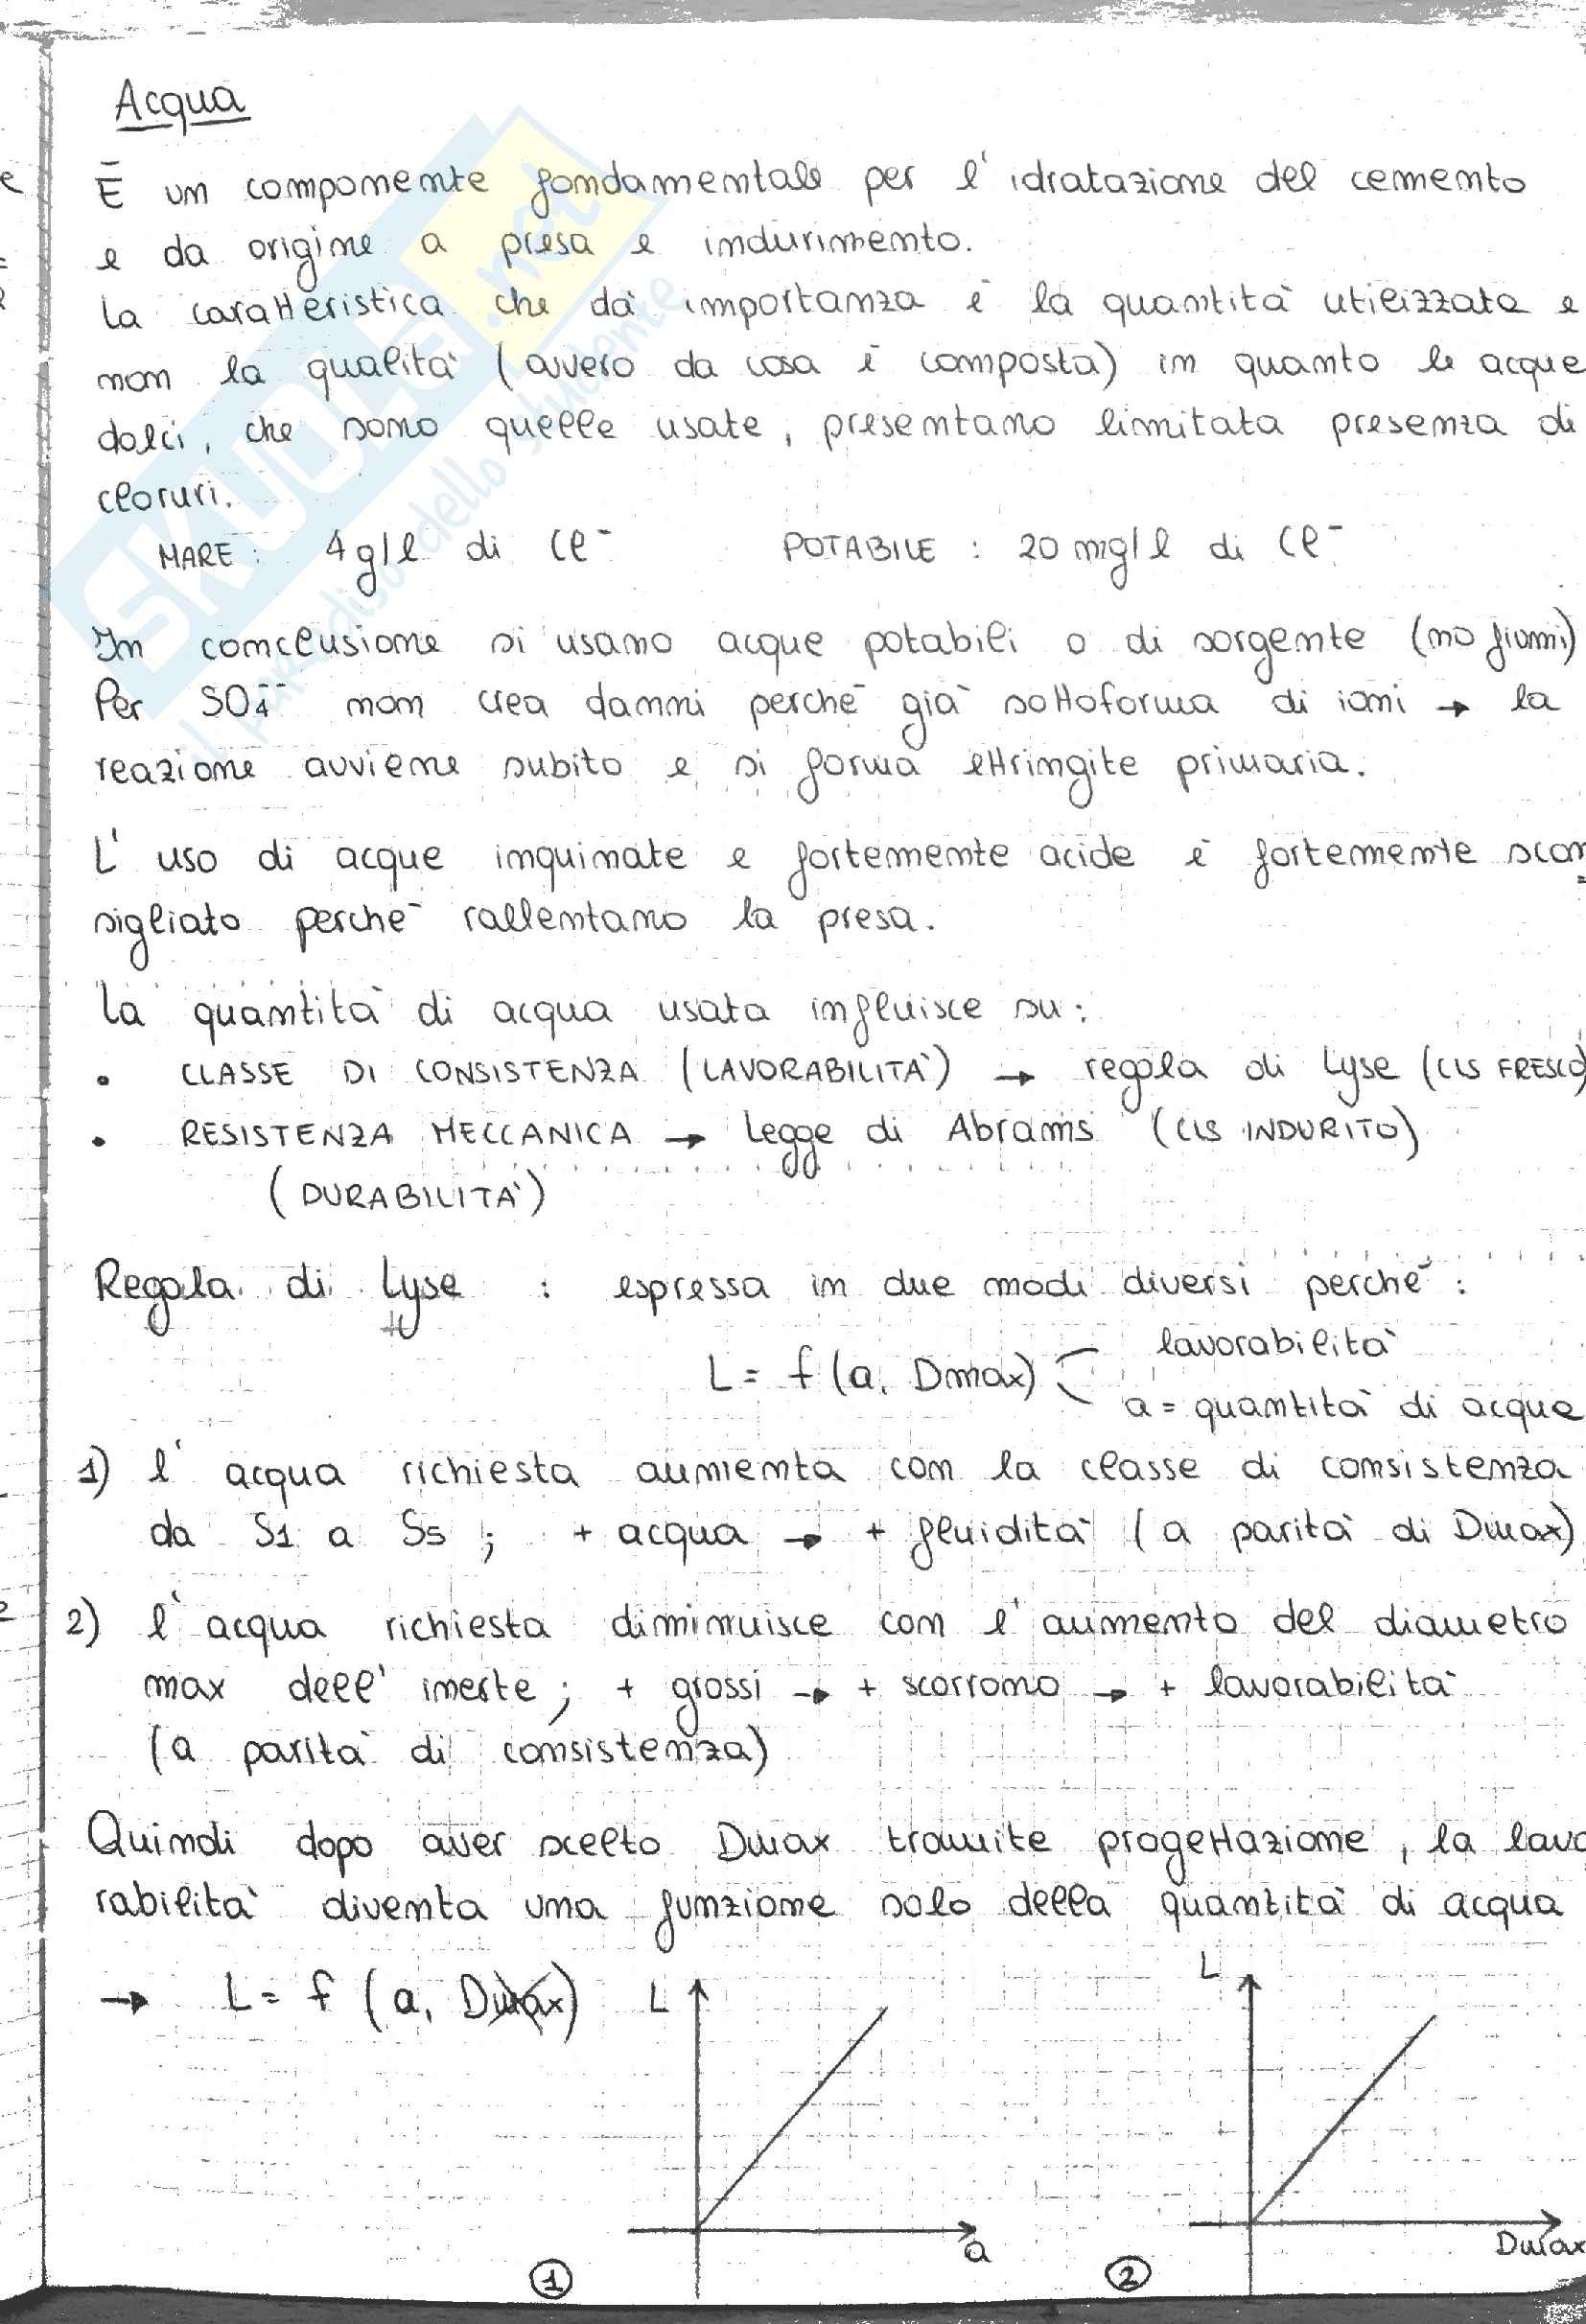 Acqua
È un componente fondamentale per l'idratazione del cemento
e da origine a presa e indurimento.
La caratteristica che dà importanza è la quantità utilizzata e
non la qualità (ovvero da cosa è composta) in quanto le acque
dolci, che sono quelle usate, presentano limitata presenza di
cloruri.
MARE: 4 g/l di Cl⁻ POTABILE: 20 mg/l di Cl⁻
In conclusione si usano acque potabili o di sorgente (no fiumi)
Per SO₄⁻⁻ non crea danni perché già sottoforma di ioni → la
reazione avviene subito e si forma ettringite primaria.
L'uso di acque inquinate e fortemente acide è fortemente scon=
sigliato perché rallentano la presa.
La quantità di acqua usata influisce su:
• CLASSE DI CONSISTENZA (LAVORABILITÀ) → regola di Lyse (CLS FRESCO)
• RESISTENZA MECCANICA → Legge di Abrams (CLS INDURITO)
(DURABILITÀ)
Regola di Lyse : espressa in due modi diversi perché:
L = f (a, Dmax) lavorabilità
a = quantità di acqua
1) l'acqua richiesta aumenta con la classe di consistenza
da S1 a S5; + acqua → + fluidità (a parità di Dmax)
2) l'acqua richiesta diminuisce con l'aumento del diametro
max dell'inerte; + grossi → + scorrono → + lavorabilità
(a parità di consistenza)
Quindi dopo aver scelto Dmax tramite progettazione, la lavo
rabilità diventa una funzione solo della quantità di acqua
→ L = f (a, Dmax)
L
a
1
L
Dmax
2
SKUOLA.net
il paradiso dello studente